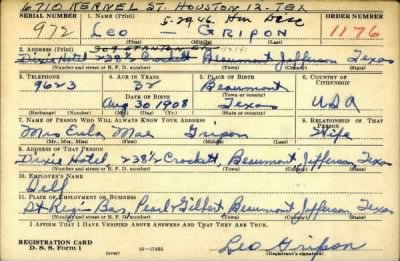 6710 KERNEL ST. HOUSTON 12-TEX
SERIAL NUMBER 1. NAME (Print) 5-29-46 ORDER NUMBER
972 LEO — GRIPON 1176
(First) (Middle) (Last)
2. ADDRESS (Print) 309 STANTON
Dixie Hotel 238½ Crockett Beaumont Jefferson Texas
(Number and street or R. F. D. number) (Town) (County) (State)
3. TELEPHONE 4. AGE IN YEARS 5. PLACE OF BIRTH 6. COUNTRY OF CITIZENSHIP
9623 32 Beaumont
(Town or county)
DATE OF BIRTH
Aug 30 1908 Texas USA
(Exchange) (Number) (Mo.) (Day) (Yr.) (State or country)
7. NAME OF PERSON WHO WILL ALWAYS KNOW YOUR ADDRESS 8. RELATIONSHIP OF THAT PERSON
Mrs Eula Mae Gripon Wife
(Mr., Mrs., Miss) (First) (Middle) (Last)
9. ADDRESS OF THAT PERSON
Dixie Hotel, 238½ Crockett, Beaumont Jefferson Texas
(Number and street or R. F. D. number) (Town) (County) (State)
10. EMPLOYER'S NAME
Self
11. PLACE OF EMPLOYMENT OR BUSINESS
St Regis Bar, Pearl & Gilbert, Beaumont Jefferson, Texas
(Number and street or R. F. D. number) (Town) (County) (State)
I AFFIRM THAT I HAVE VERIFIED ABOVE ANSWERS AND THAT THEY ARE TRUE.
REGISTRATION CARD
D. S. S. Form 1 Leo Gripon
(Registrant's signature)